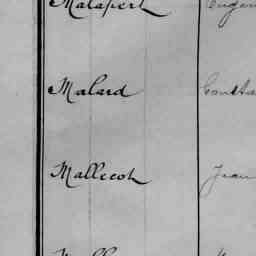 Malapert
Malard Consta
Mallecot Jean